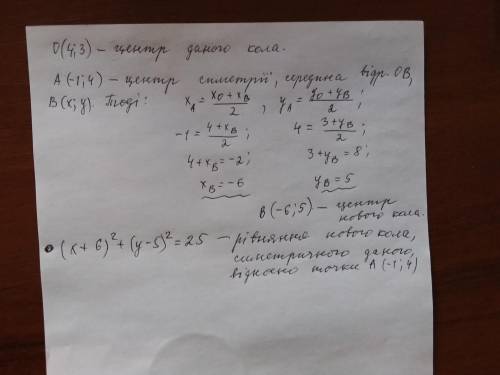 O(4;3) – центр даного кола.
A(-1;4) – центр симетрії, середина відр. OB,
B(x;y). Тоді: x_A = (x_O + x_B)/2 , y_A = (y_O + y_B)/2 ;
-1 = (4 + x_B)/2 ; 4 = (3 + y_B)/2 ;
4 + x_B = -2; 3 + y_B = 8;
x_B = -6 y_B = 5
B(-6;5) – центр
нового кола.
(x + 6)² + (y - 5)² = 25 – рівняння нового кола,
симетричного даного,
відносно точки A(-1;4)